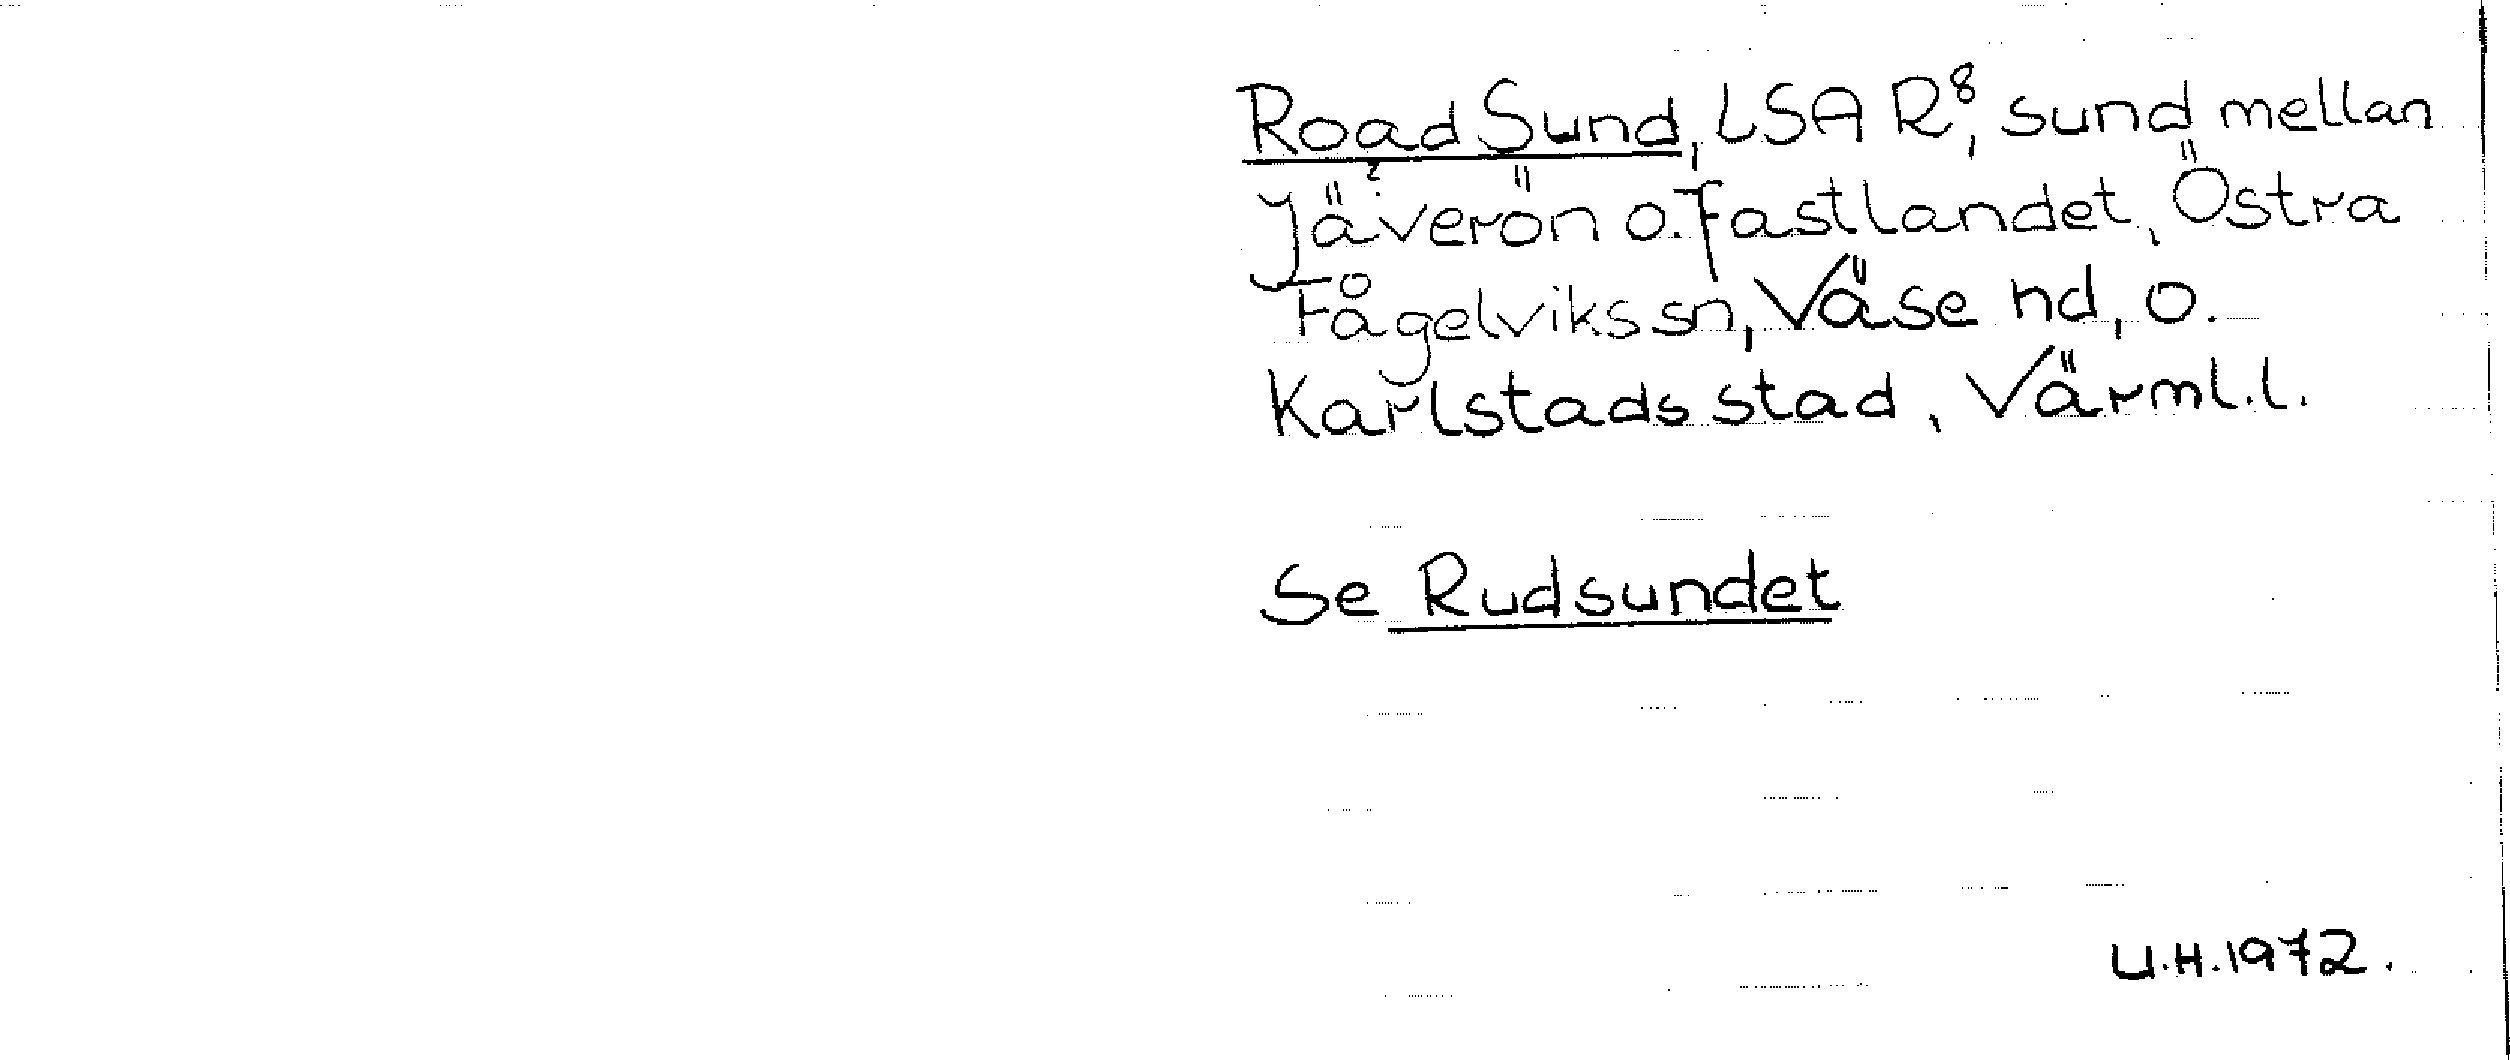 Road Sund, LSA R⁸, sund mellan
Jäverön o. fastlandet, Östra
Fågelviks sn, Väse hd, o.
Karlstads stad, Värml. l.
Se Rudsundet
U.H. 1972.